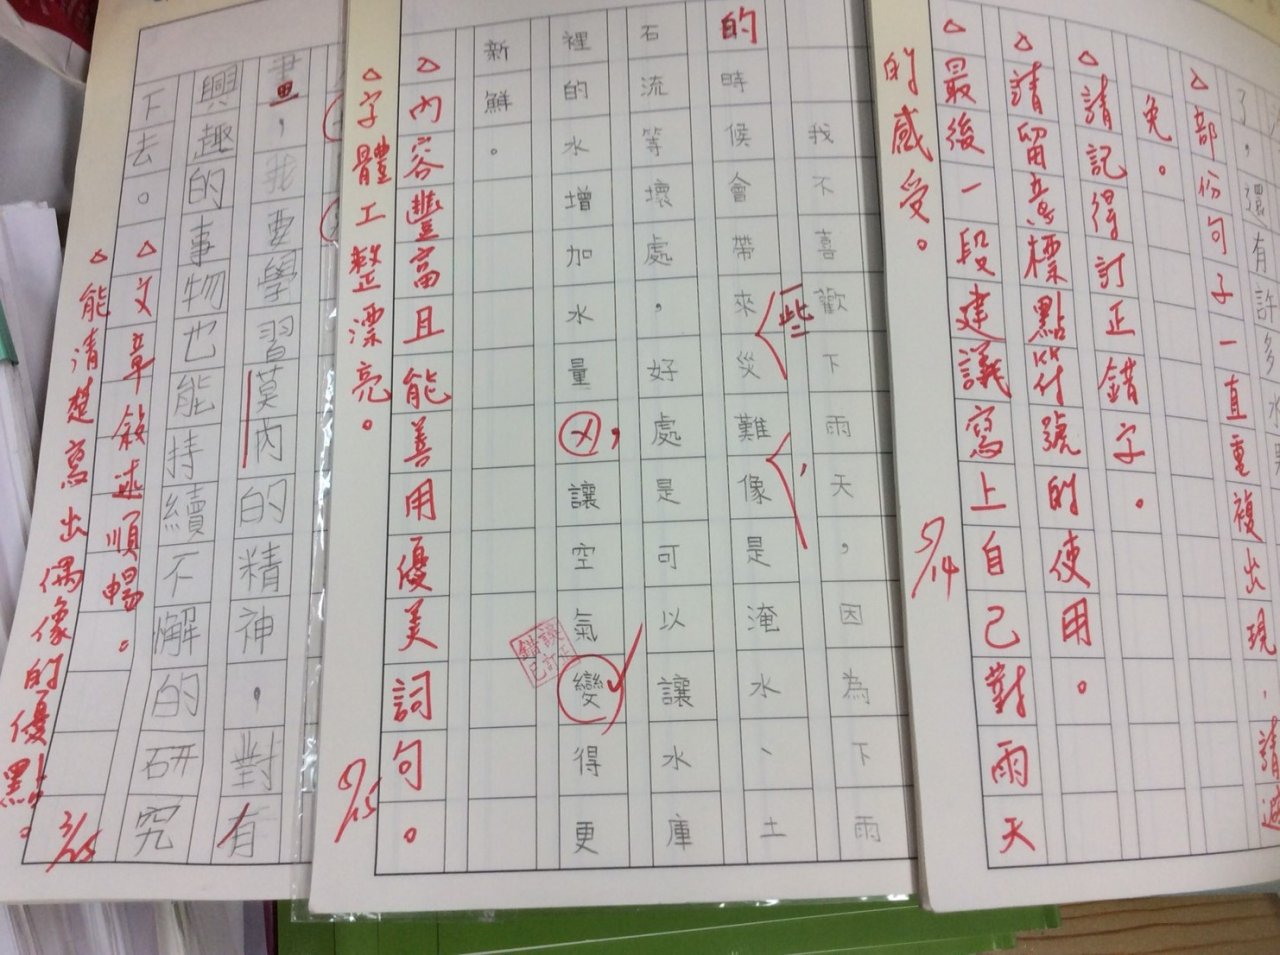 了，還有許多水
△部份句子一直重複出現，請避
免。
△請記得訂正錯字。
△請留意標點符號的使用。
△最後一段建議寫上自己對雨天
的感受。
5/14
我不喜歡下雨天，因為下雨
一些
的時候會帶來災難，像是淹水、土
石流等壞處，好處是可以讓水庫
裡的水增加水量，又讓空氣變得更
新鮮。
錯誤已訂正
△內容豐富且能善用優美詞句。
△字體工整漂亮。
5/15
畫，我要學習莫內的精神，對有
興趣的事物也能持續不懈的研究
下去。
△文章敘述順暢。
△能清楚寫出偶像的優點。
3/25